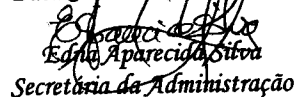 Edna Aparecida Silva
Secretária da Administração